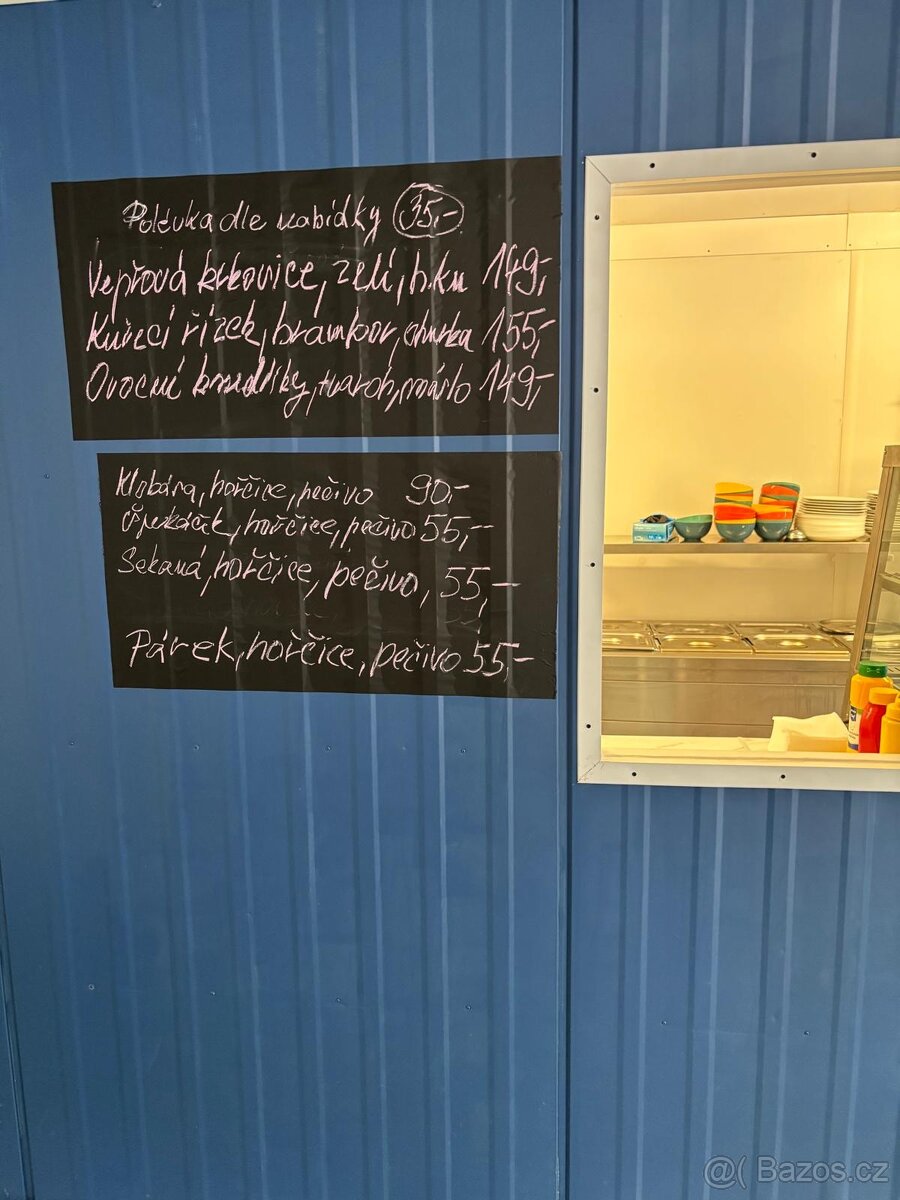 Polévka dle nabídky 35,-
Vepřová krkovice, zelí, h.kn 149,-
Kuřecí řízek, brambor, okurka 155,-
Ovocné knedlíky, tvaroh, máslo 149,-
Klobása, hořčice, pečivo 90,-
Špekáček, hořčice, pečivo 55,-
Sekaná, hořčice, pečivo, 55,-
Párek, hořčice, pečivo 55,-
@( Bazos.cz